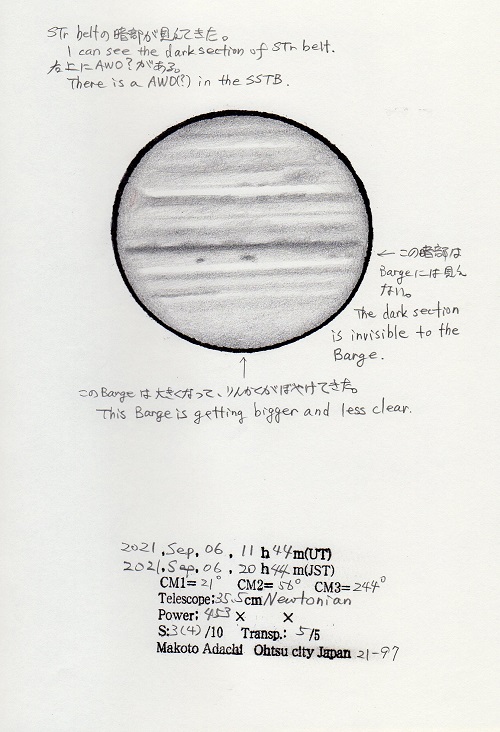 STr beltの暗部が見えてきた。
I can see the dark section of STr belt.
右上にAWO?がある。
There is a AWO(?) in the SSTB.
← この暗部は
Bargeには見え
ない。
The dark section
is invisible to the
Barge.
↑
このBargeは大きくなって、りんかくがぼやけてきた。
This Barge is getting bigger and less clear.
2021.Sep.06.11h44m(UT)
2021.Sep.06.20h44m(JST)
CM1=21° CM2=56° CM3=244°
Telescope:35.5cm Newtonian
Power: 453× ×
S:3(4)/10 Transp.: 5/5
Makoto Adachi Ohtsu city Japan 21-97